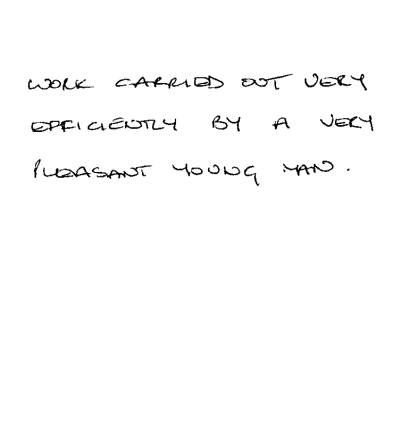 WORK CARRIED OUT VERY
EFFICIENTLY BY A VERY
PLEASANT YOUNG MAN.